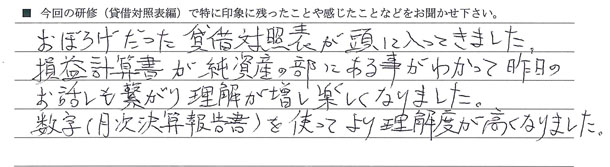 ■ 今回の研修（貸借対照表編）で特に印象に残ったことや感じたことなどをお聞かせ下さい。
おぼろげだった貸借対照表が頭に入ってきました。
損益計算書が純資産の部にある事がわかって昨日の
お話しも繋がり理解が増し楽しくなりました。
数字(月次決算報告書)を使ってより理解度が高くなりました。